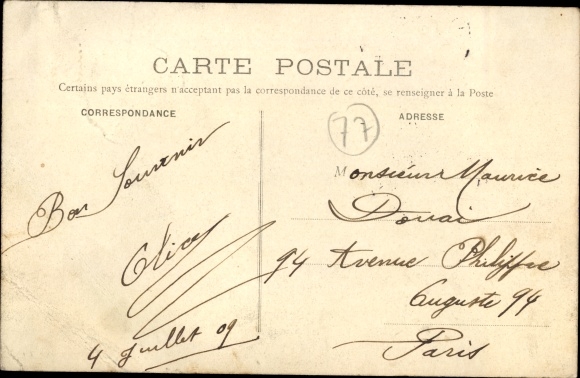 CARTE POSTALE
Certains pays étrangers n'acceptant pas la correspondance de ce côté, se renseigner à la Poste
CORRESPONDANCE
Bon Souvenir
Alice
4 Juillet 09
ADRESSE
77
Monsieur Maurice
Douai
94 Avenue Philippe
Auguste 94
Paris